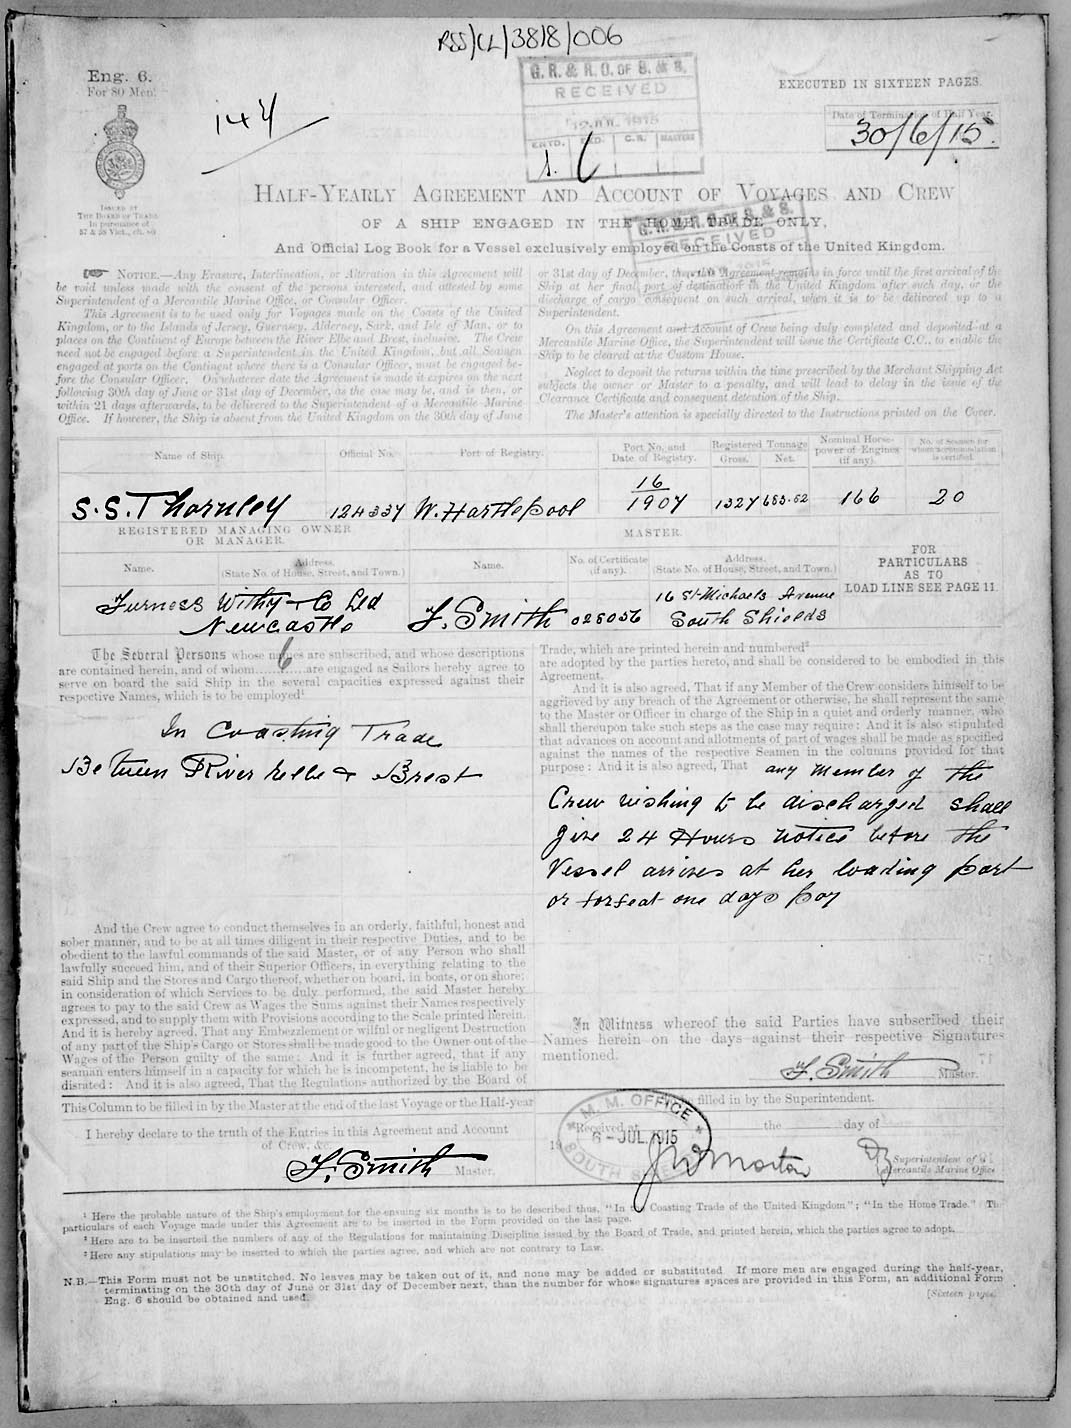 RSS/CL/3818/006
Eng. 6.
For 80 Men.
144
G. R. & R. O. OF S. & S.
RECEIVED
1915
ENTD.
C.R.
MASTERS
EXECUTED IN SIXTEEN PAGES.
Date of Termination of Half Year.
30/6/15
ISSUED BY
THE BOARD OF TRADE
In pursuance of
57 & 58 Vict., ch. 60
HALF-YEARLY AGREEMENT AND ACCOUNT OF VOYAGES AND CREW
OF A SHIP ENGAGED IN THE HOME TRADE ONLY,
G. R. & R. O. OF S. & S.
RECEIVED
And Official Log Book for a Vessel exclusively employed on the Coasts of the United Kingdom.
NOTICE.—Any Erasure, Interlineation, or Alteration in this Agreement will
be void unless made with the consent of the persons interested, and attested by some
Superintendent of a Mercantile Marine Office, or Consular Officer.
This Agreement is to be used only for Voyages made on the Coasts of the United
Kingdom, or to the Islands of Jersey, Guernsey, Alderney, Sark, and Isle of Man, or to
places on the Continent of Europe between the River Elbe and Brest, inclusive. The Crew
need not be engaged before a Superintendent in the United Kingdom, but all Seamen
engaged at ports on the Continent where there is a Consular Officer, must be engaged be-
fore the Consular Officer. On whatever date the Agreement is made it expires on the next
following 30th day of June or 31st day of December, as the case may be, and is then, or
within 21 days afterwards, to be delivered to the Superintendent of a Mercantile Marine
Office. If however, the Ship is absent from the United Kingdom on the 30th day of June
or 31st day of December, then the Agreement remains in force until the first arrival of the
Ship at her final port of destination in the United Kingdom after such day, or the
discharge of cargo consequent on such arrival, when it is to be delivered up to a
Superintendent.
On this Agreement and Account of Crew being duly completed and deposited at a
Mercantile Marine Office, the Superintendent will issue the Certificate C.C., to enable the
Ship to be cleared at the Custom House.
Neglect to deposit the returns within the time prescribed by the Merchant Shipping Act
subjects the owner or Master to a penalty, and will lead to delay in the issue of the
Clearance Certificate and consequent detention of the Ship.
The Master's attention is specially directed to the Instructions printed on the Cover.
Name of Ship.
Official No.
Port of Registry.
Port No. and
Date of Registry.
Registered Tonnage
Gross.
Net.
Nominal Horse-
power of Engines
(if any).
No. of Seamen for
whom accommodation
is certified.
S.S. Thornley
124337
W. Hartlepool
16
1907
1327
683.62
166
20
REGISTERED MANAGING OWNER
OR MANAGER.
MASTER.
Name.
Address.
(State No. of House, Street, and Town.)
Name.
No. of Certificate
(if any).
Address.
(State No. of House, Street, and Town.)
FOR
PARTICULARS
AS TO
LOAD LINE SEE PAGE 11.
Furness Withy & Co Ltd
Newcastle
F. Smith
028056
16 St Michaels Avenue
South Shields
The Several Persons whose names are subscribed, and whose descriptions
are contained herein, and of whom 6 are engaged as Sailors hereby agree to
serve on board the said Ship in the several capacities expressed against their
respective Names, which is to be employed¹
In Coasting Trade
Between River Kelbe & Brest
And the Crew agree to conduct themselves in an orderly, faithful, honest and
sober manner, and to be at all times diligent in their respective Duties, and to be
obedient to the lawful commands of the said Master, or of any Person who shall
lawfully succeed him, and of their Superior Officers, in everything relating to the
said Ship and the Stores and Cargo thereof, whether on board, in boats, or on shore;
in consideration of which Services to be duly performed, the said Master hereby
agrees to pay to the said Crew as Wages the Sums against their Names respectively
expressed, and to supply them with Provisions according to the Scale printed herein.
And it is hereby agreed, That any Embezzlement or wilful or negligent Destruction
of any part of the Ship's Cargo or Stores shall be made good to the Owner out of the
Wages of the Person guilty of the same: And it is further agreed, that if any
seaman enters himself in a capacity for which he is incompetent, he is liable to be
disrated: And it is also agreed, That the Regulations authorized by the Board of
Trade, which are printed herein and numbered²
are adopted by the parties hereto, and shall be considered to be embodied in this
Agreement.
And it is also agreed, That if any Member of the Crew considers himself to be
aggrieved by any breach of the Agreement or otherwise, he shall represent the same
to the Master or Officer in charge of the Ship in a quiet and orderly manner, who
shall thereupon take such steps as the case may require: And it is also stipulated
that advances on account and allotments of part of wages shall be made as specified
against the names of the respective Seamen in the columns provided for that
purpose: And it is also agreed, That any member of the
Crew wishing to be discharged shall
give 24 Hours notice before the
Vessel arrives at her loading port
or forfeat one days pay
In Witness whereof the said Parties have subscribed their
Names herein on the days against their respective Signatures
mentioned.
F. Smith Master.
This Column to be filled in by the Master at the end of the last Voyage or the Half-year
I hereby declare to the truth of the Entries in this Agreement and Account
of Crew, &c.
F. Smith Master.
be filled in by the Superintendent.
Received at the day of
19
M. M. OFFICE
6 - JUL 1915
SOUTH SHIELDS
J W Morton
Superintendent of a
Mercantile Marine Office
¹ Here the probable nature of the Ship's employment for the ensuing six months is to be described thus, "In the Coasting Trade of the United Kingdom"; "In the Home Trade." The
particulars of each Voyage made under this Agreement are to be inserted in the Form provided on the last page.
² Here are to be inserted the numbers of any of the Regulations for maintaining Discipline issued by the Board of Trade, and printed herein, which the parties agree to adopt.
³ Here any stipulations may be inserted to which the parties agree, and which are not contrary to Law.
N.B.—This Form must not be unstitched. No leaves may be taken out of it, and none may be added or substituted. If more men are engaged during the half-year,
terminating on the 30th day of June or 31st day of December next, than the number for whose signatures spaces are provided in this Form, an additional Form
Eng. 6 should be obtained and used.
[Sixteen pages.